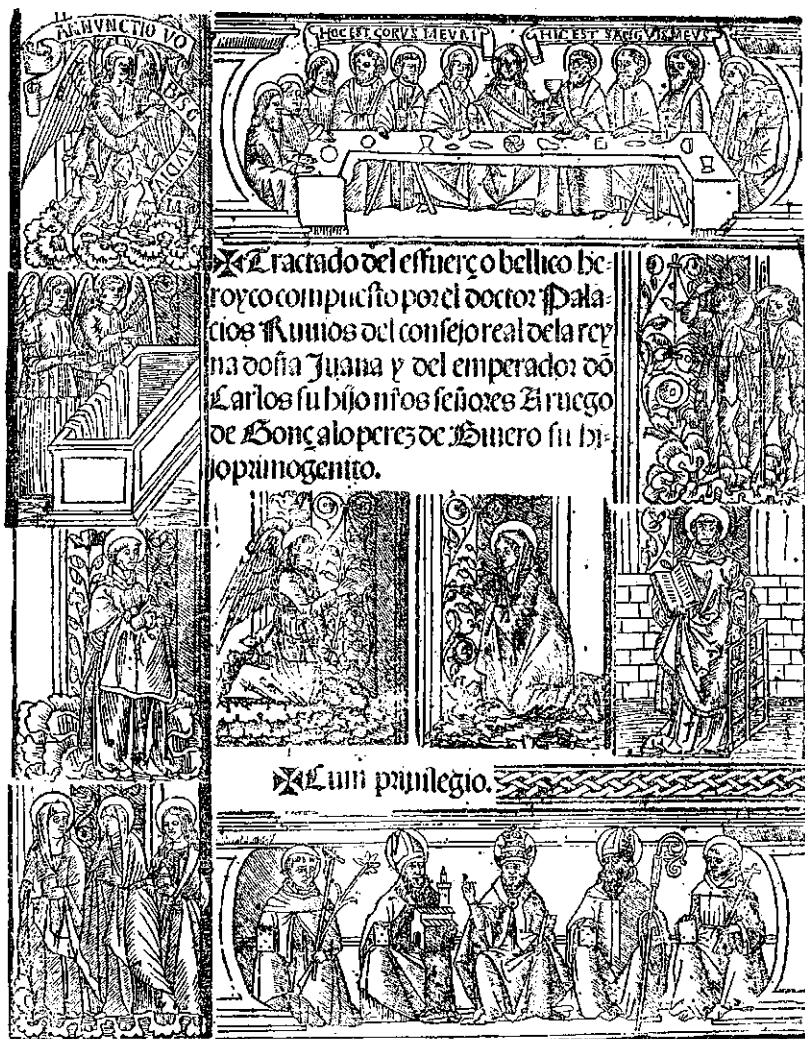 ANNVNCTIO VO
BIS G
AVDIV
HOC EST CORVS MEVM
HIC EST SANGVIS MEVS
✠Tractado del esfuerço bellico he-
royco compuesto por el doctor Pala-
cios Ruuios del consejo real dela rey
na doña Juana y del emperador dõ
Carlos su hijo nr̃os señores A ruego
de Gonçalo perez de Biuero su hi-
jo primogenito.
✠Cum priuilegio.